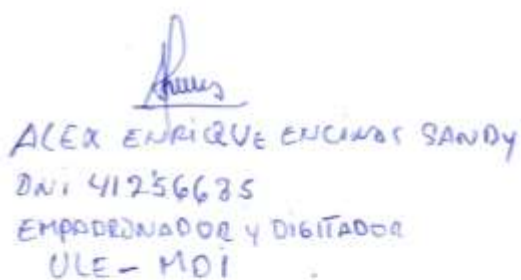 ALEX ENRIQUE ENCINAS SANDY
DNI 41256635
EMPADRONADOR Y DIGITADOR
ULE - MDI